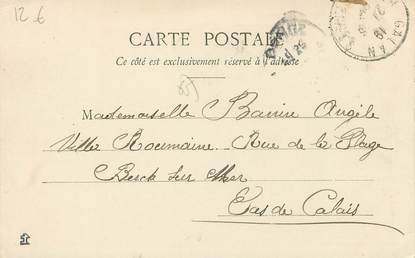 12.6
CARTE POSTALE
Ce côté est exclusivement réservé à l'adresse
Mademoiselle Angèle
Villa Roumaine Rue de la Plage
Berck sur Mer
Pas de Calais